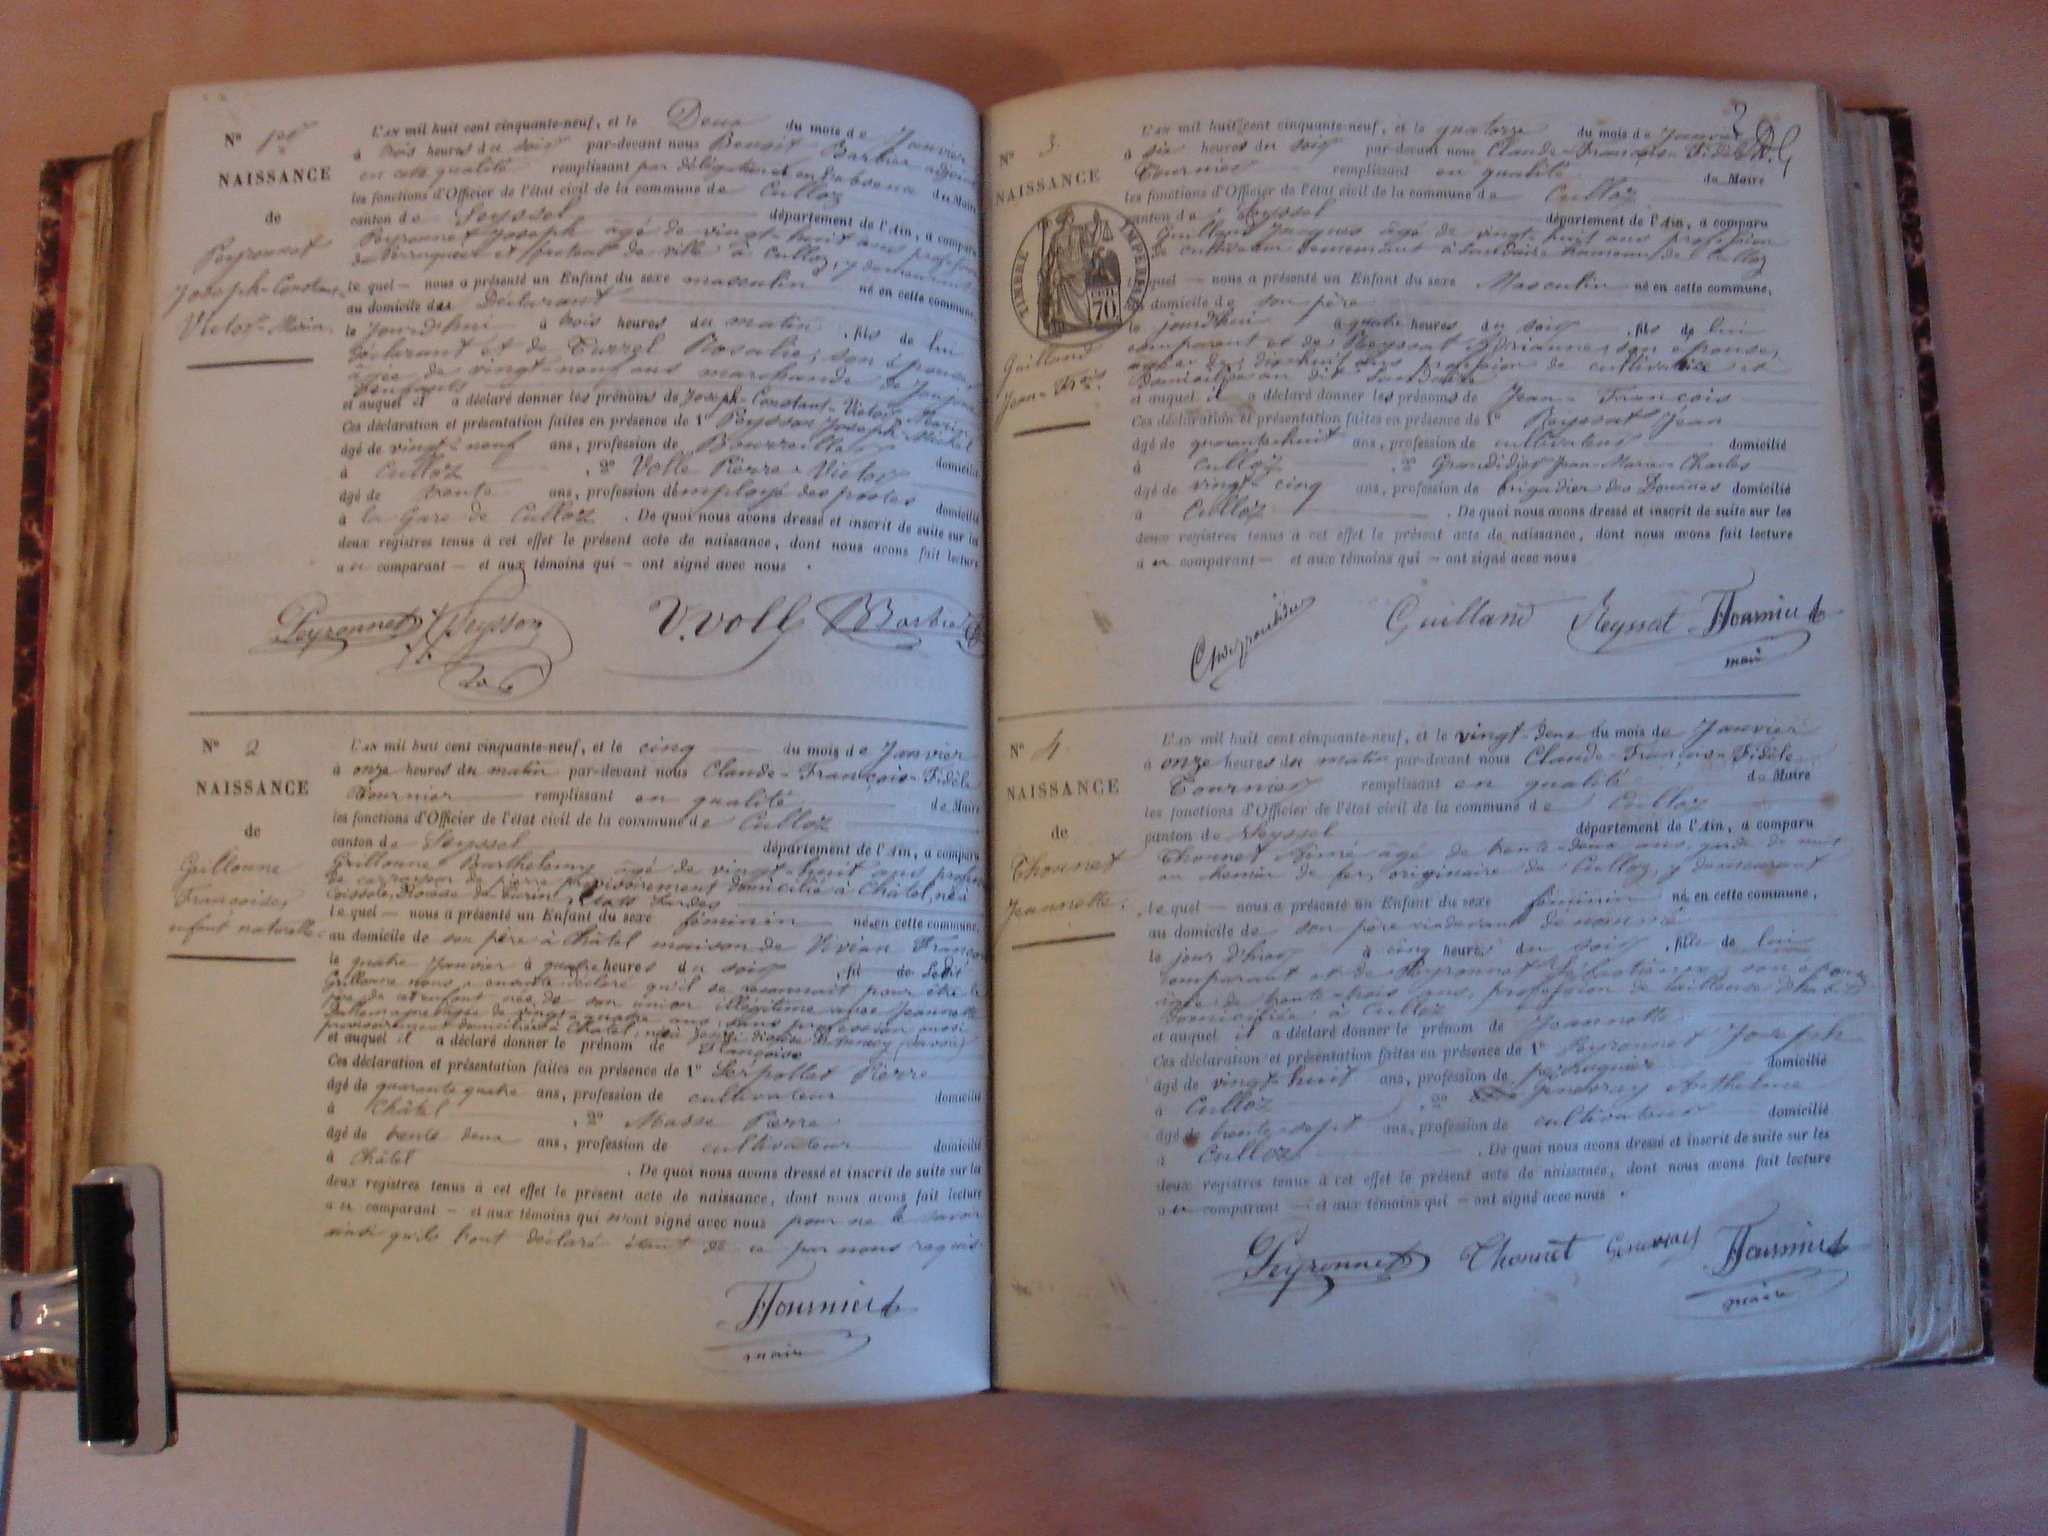 N° 1er
NAISSANCE
de
Peyronnet
Joseph-Constant-
Victor-Marin
L'AN mil huit cent cinquante-neuf, et le Deux du mois de Janvier
à trois heures du soir par-devant nous Benoit Barbier adjoint
en cette qualité remplissant par délégation en l'absence du Maire
les fonctions d'Officier de l'état civil de la commune de Culloz
canton de Seyssel département de l'Ain, a comparu
Peyronnet Joseph âgé de vingt-huit ans profession
de Perruquier et de ville à Culloz, y demeurant
lequel — nous a présenté un Enfant du sexe masculin né en cette commune,
au domicile du Déclarant
le jourd'hui à trois heures du matin, fils de lui
déclarant et de Turrel Rosalie, son épouse
âgée de vingt-neuf ans marchande de
d'enfants
et auquel il a déclaré donner les prénoms de Joseph-Constant-Victor Marin
Ces déclaration et présentation faites en présence de 1° Peysson Joseph Michel
âgé de vingt-neuf ans, profession de Bourrelier
domicilié
à Culloz, 2° Volle Pierre-Victor
âgé de trente ans, profession d'employé des postes
domicilié
à la Gare de Culloz. De quoi nous avons dressé et inscrit de suite sur les
deux registres tenus à cet effet le présent acte de naissance, dont nous avons fait lecture
au comparant — et aux témoins qui — ont signé avec nous.
Peyronnet Peysson V. Voll Barbier
N° 2
NAISSANCE
de
Grillonne
Françoise,
enfant naturelle
L'AN mil huit cent cinquante-neuf, et le cinq du mois de Janvier
à onze heures du matin par-devant nous Claude-François-Fidèle
Fournier remplissant en qualité de Maire
les fonctions d'Officier de l'état civil de la commune de Culloz
canton de Seyssel département de l'Ain, a comparu
Grillonne Barthelemy âgé de vingt-huit ans profession
de de pierre provisoirement domicilié à Châtel, né à
Diocèse de Turin, états Sardes
lequel — nous a présenté un Enfant du sexe féminin né en cette commune,
au domicile de son père à Châtel maison de Vivian François
le quatre Janvier à quatre heures du soir, fil de Ledit
Grillonne nous a ensuite déclaré qu'il se reconnait pour être le
père de cet enfant née de son union illégitime avec Jeannette
âgée de vingt-quatre ans, sans profession aussi
provisoirement domiciliée à Châtel, née à diocèse D'Annecy (Savoie)
et auquel il a déclaré donner le prénom de Françoise
Ces déclaration et présentation faites en présence de 1° Serpollet Pierre
âgé de quarante quatre ans, profession de cultivateur domicilié
à Châtel, 2° Masse Pierre
âgé de trente deux ans, profession de cultivateur domicilié
à Châtel. De quoi nous avons dressé et inscrit de suite sur les
deux registres tenus à cet effet le présent acte de naissance, dont nous avons fait lecture
au comparant — et aux témoins qui n'ont signé avec nous pour ne le savoir
ainsi qu'ils l'ont déclaré étant de ce par nous requis.
Fournier
maire
2
N° 3.
NAISSANCE
TIMBRE IMPERIAL
70
Guilland
Jean-Fcois
L'AN mil huit cent cinquante-neuf, et le quatorze du mois de Janvier
à six heures du soir par-devant nous Claude-François-Fidèle
Fournier remplissant en qualité de Maire
les fonctions d'Officier de l'état civil de la commune de Culloz
canton de Seyssel département de l'Ain, a comparu
Guilland Jacques âgé de vingt-huit ans profession
de cultivateur demeurant à hameau de Culloz
lequel — nous a présenté un Enfant du sexe Masculin né en cette commune,
domicile de son père
le jourd'hui à quatre heures du soir, fils de lui
comparant et de Reyssat son épouse,
âgée de dix-huit ans profession de cultivatrice et
domiciliée au dit
et auquel il a déclaré donner les prénoms de Jean-François
Ces déclaration et présentation faites en présence de 1° Reyssat Jean
âgé de quarante-huit ans, profession de cultivateur domicilié
à Culloz, 2° Grandidier Jean-Marie-Charles
âgé de vingt-cinq ans, profession de brigadier des Douanes domicilié
à Culloz. De quoi nous avons dressé et inscrit de suite sur les
deux registres tenus à cet effet le présent acte de naissance, dont nous avons fait lecture
au comparant — et aux témoins qui — ont signé avec nous
Guilland Reyssat Fournier
maire
N° 4.
NAISSANCE
de
Thonnet
Jeannette.
L'AN mil huit cent cinquante-neuf, et le vingt-deux du mois de Janvier
à onze heures du matin par-devant nous Claude-François-Fidèle
Fournier remplissant en qualité de Maire
les fonctions d'Officier de l'état civil de la commune de Culloz
canton de Seyssel département de l'Ain, a comparu
Thonnet Aimé âgé de trente-deux ans, garde de nuit
au chemin de fer, originaire de Culloz, y demeurant
lequel — nous a présenté un Enfant du sexe féminin né en cette commune,
au domicile de son père ci-devant dénommé
le jour d'hier à cinq heures du soir, fille de lui
comparant et de Peyronnet Sébastienne, son épouse
âgée de trente-trois ans, profession de tailleuse d'habits
domiciliée à Culloz
et auquel il a déclaré donner le prénom de Jeannette.
Ces déclaration et présentation faites en présence de 1° Peyronnet Joseph
âgé de vingt-huit ans, profession de perruquier domicilié
à Culloz, 2° Anthelme
âgé de trente-sept ans, profession de cultivateur domicilié
à Culloz. De quoi nous avons dressé et inscrit de suite sur les
deux registres tenus à cet effet le présent acte de naissance, dont nous avons fait lecture
au comparant — et aux témoins qui — ont signé avec nous.
Peyronnet Thonnet Fournier
maire